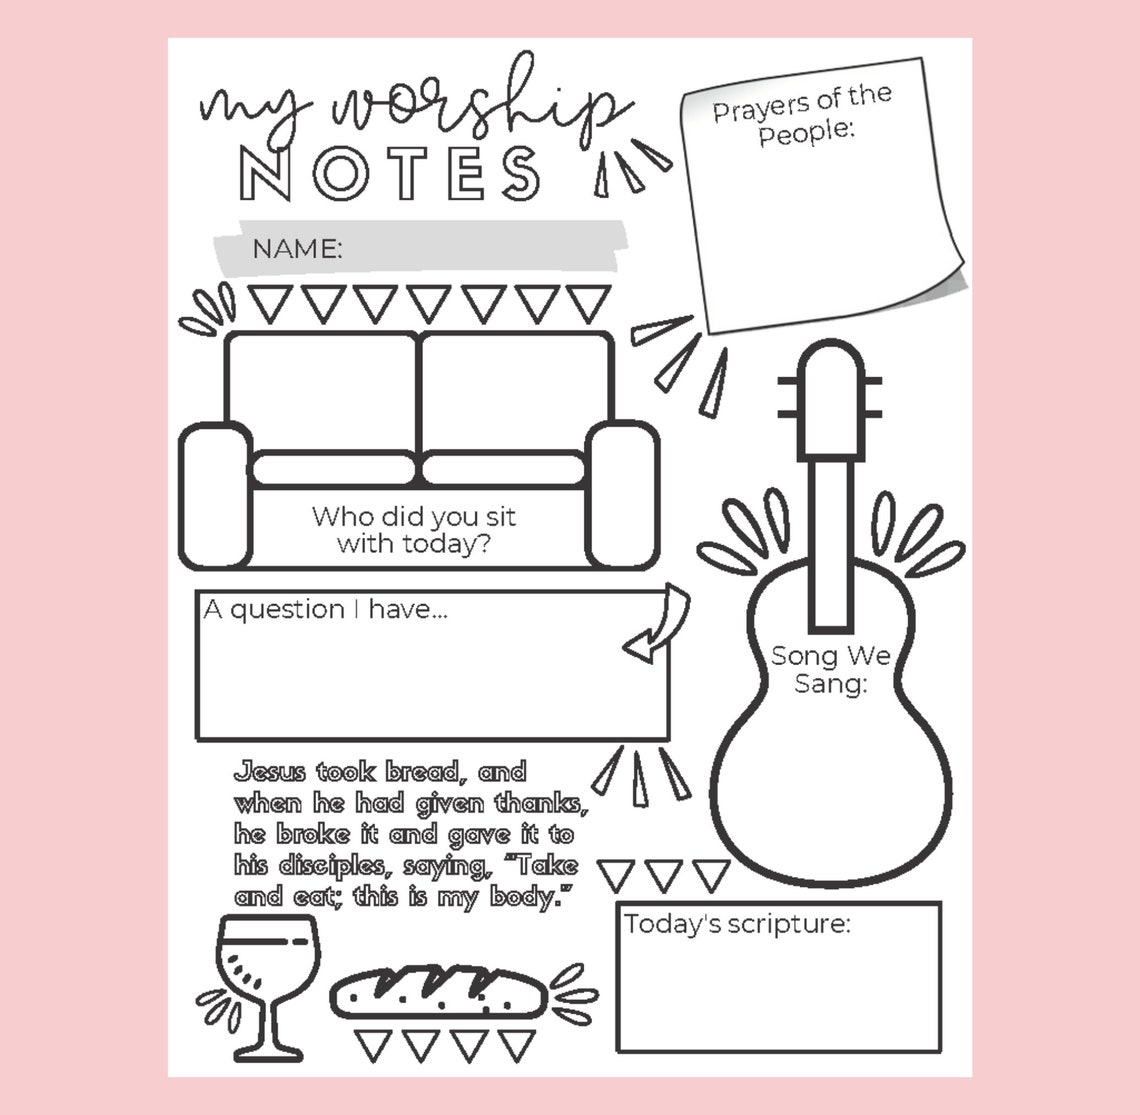 my worship
NOTES
Prayers of the
People:
NAME:
Who did you sit
with today?
A question I have...
Song We
Sang:
Jesus took bread, and
when he had given thanks,
he broke it and gave it to
his disciples, saying, "Take
and eat; this is my body."
Today's scripture: